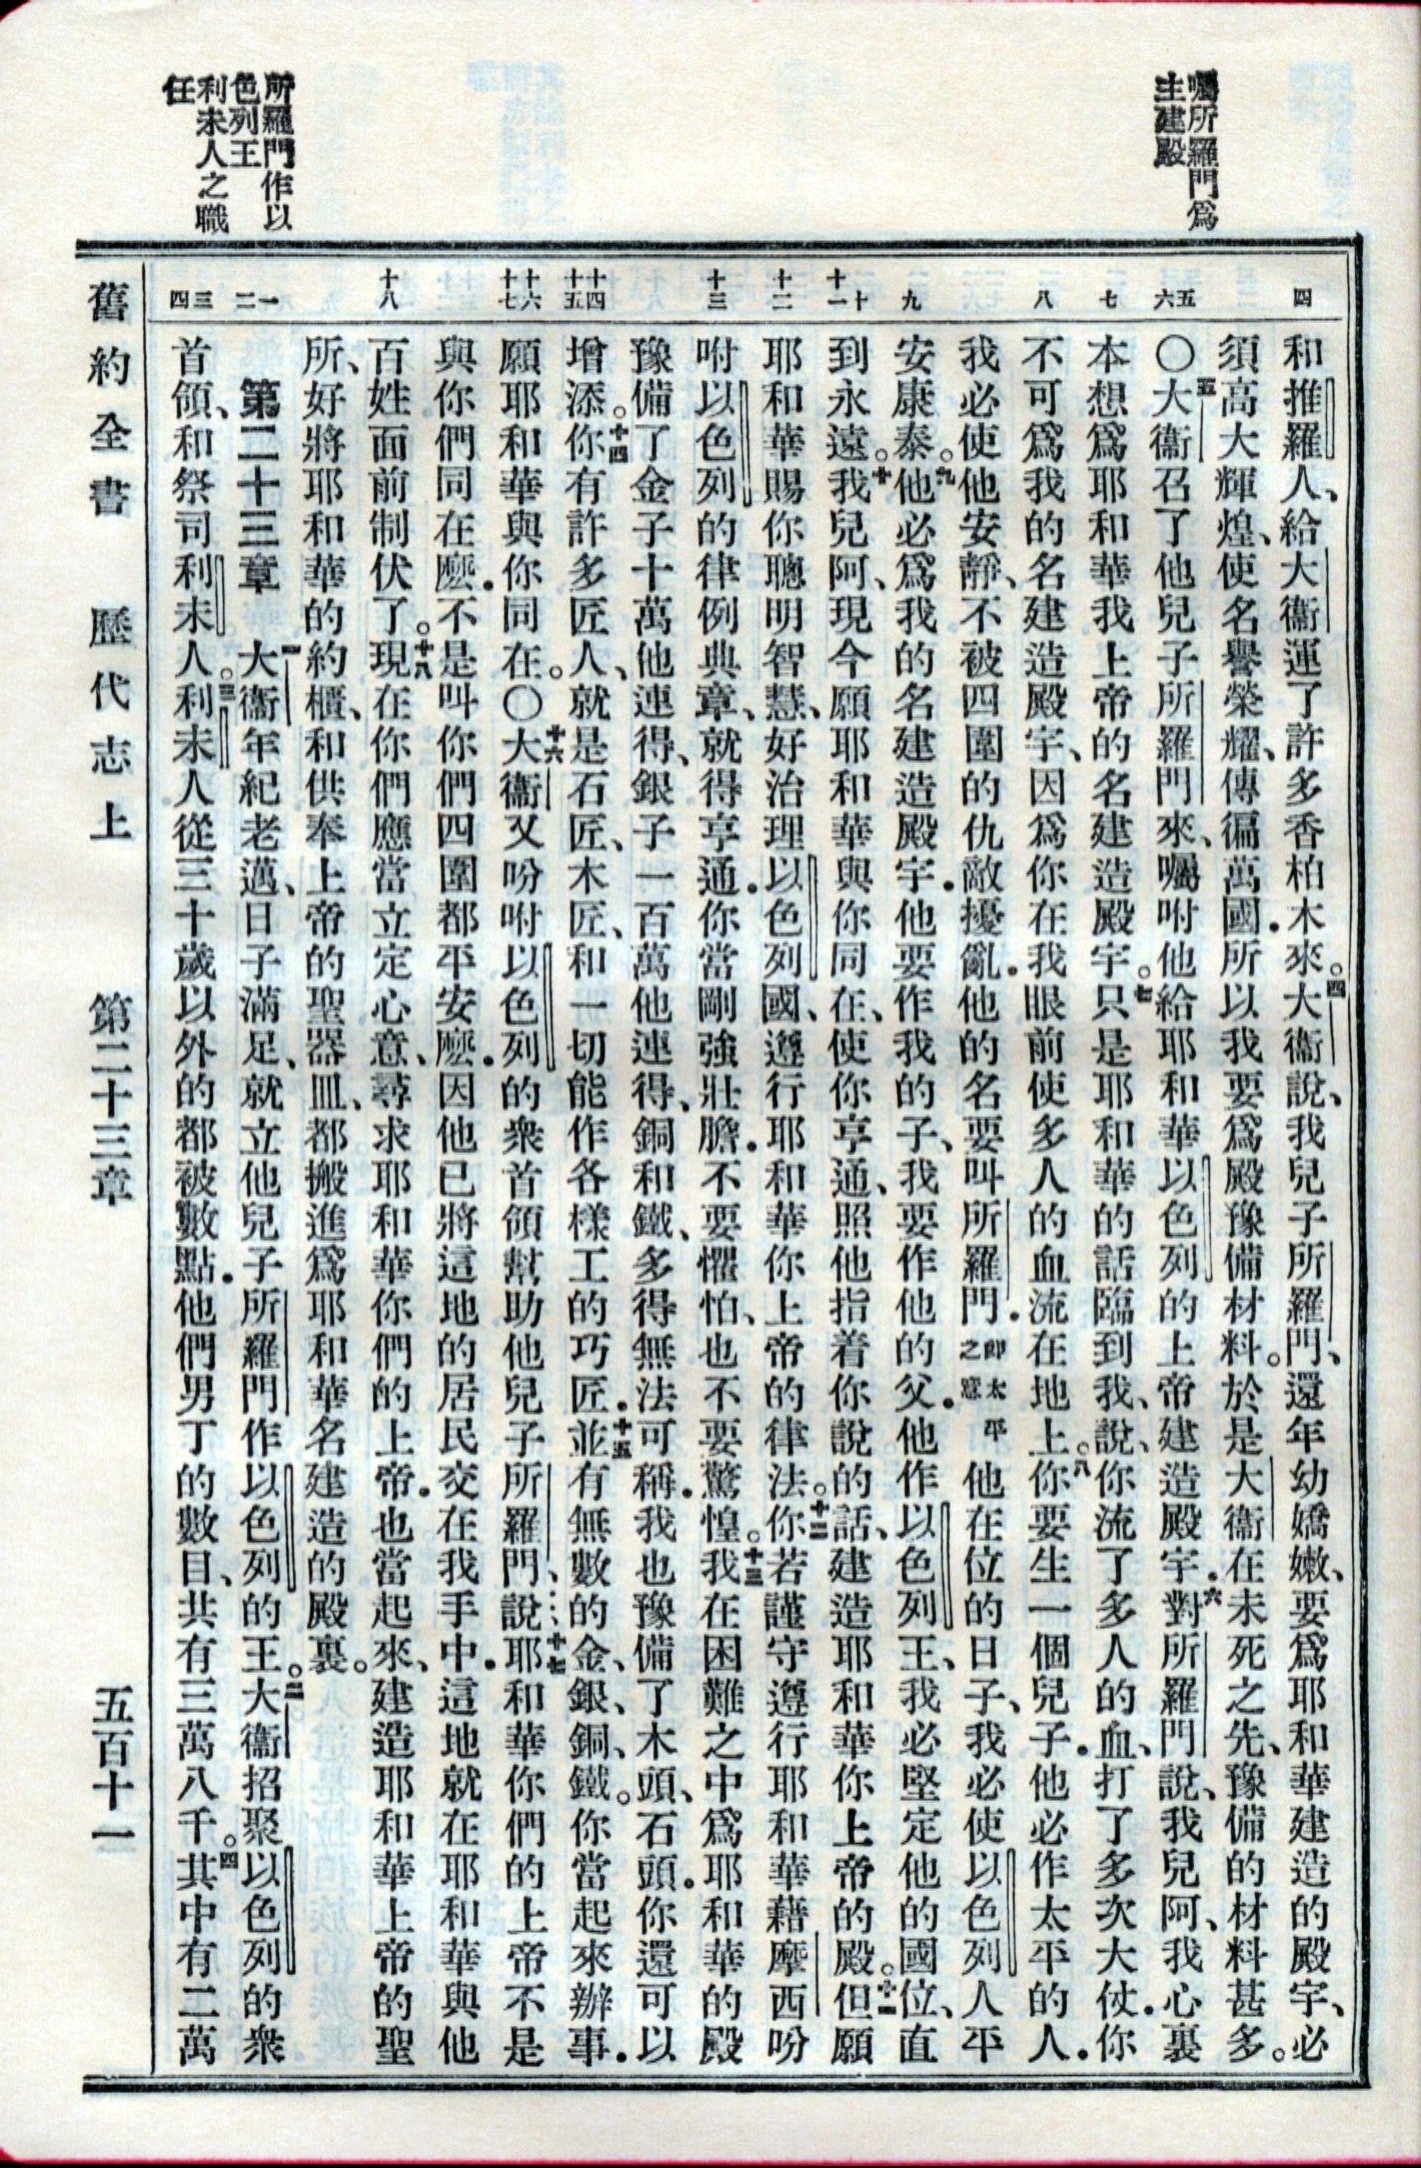 囑所羅門爲
主建殿
所羅門作以
色列王
利未人之職
任
四
五
六
七
八
九
十
十一
十二
十三
十四
十五
十六
十七
十八
一
二
三
四
和推羅人、給大衞運了許多香柏木來。四大衞說、我兒子所羅門、還年幼嬌嫩、要爲耶和華建造的殿宇、必
須高大輝煌、使名譽榮耀、傳徧萬國．所以我要爲殿豫備材料。於是大衞在未死之先、豫備的材料甚多。
○五大衞召了他兒子所羅門來、囑咐他給耶和華以色列的上帝建造殿宇．六對所羅門說、我兒阿、我心裏
本想爲耶和華我上帝的名建造殿宇。七只是耶和華的話臨到我、說、你流了多人的血、打了多次大仗．你
不可爲我的名建造殿宇、因爲你在我眼前使多人的血流在地上。八你要生一個兒子．他必作太平的人．
我必使他安靜、不被四圍的仇敵擾亂．他的名要叫所羅門．卽太平之意他在位的日子、我必使以色列人平
安康泰。九他必爲我的名建造殿宇．他要作我的子、我要作他的父．他作以色列王、我必堅定他的國位、直
到永遠。十我兒阿、現今願耶和華與你同在、使你亨通、照他指着你說的話、建造耶和華你上帝的殿。十一但願
耶和華賜你聰明智慧、好治理以色列國、遵行耶和華你上帝的律法。十二你若謹守遵行耶和華藉摩西吩
咐以色列的律例典章、就得亨通．你當剛強壯膽．不要懼怕、也不要驚惶。十三我在困難之中爲耶和華的殿
豫備了金子十萬他連得、銀子一百萬他連得、銅和鐵、多得無法可稱．我也豫備了木頭、石頭．你還可以
增添。十四你有許多匠人、就是石匠、木匠、和一切能作各樣工的巧匠．十五並有無數的金、銀、銅、鐵。你當起來辦事．
願耶和華與你同在。○十六大衞又吩咐以色列的衆首領幫助他兒子所羅門、說、十七耶和華你們的上帝不是
與你們同在麽．不是叫你們四圍都平安麽．因他已將這地的居民交在我手中．這地就在耶和華與他
百姓面前制伏了。十八現在你們應當立定心意、尋求耶和華你們的上帝．也當起來、建造耶和華上帝的聖
所、好將耶和華的約櫃、和供奉上帝的聖器皿、都搬進爲耶和華名建造的殿裏。
第二十三章　一大衞年紀老邁、日子滿足、就立他兒子所羅門作以色列的王。二大衞招聚以色列的衆
首領、和祭司利未人。三利未人從三十歲以外的都被數點．他們男丁的數目、共有三萬八千。四其中有二萬
舊約全書　歷代志上　第二十三章　五百十一